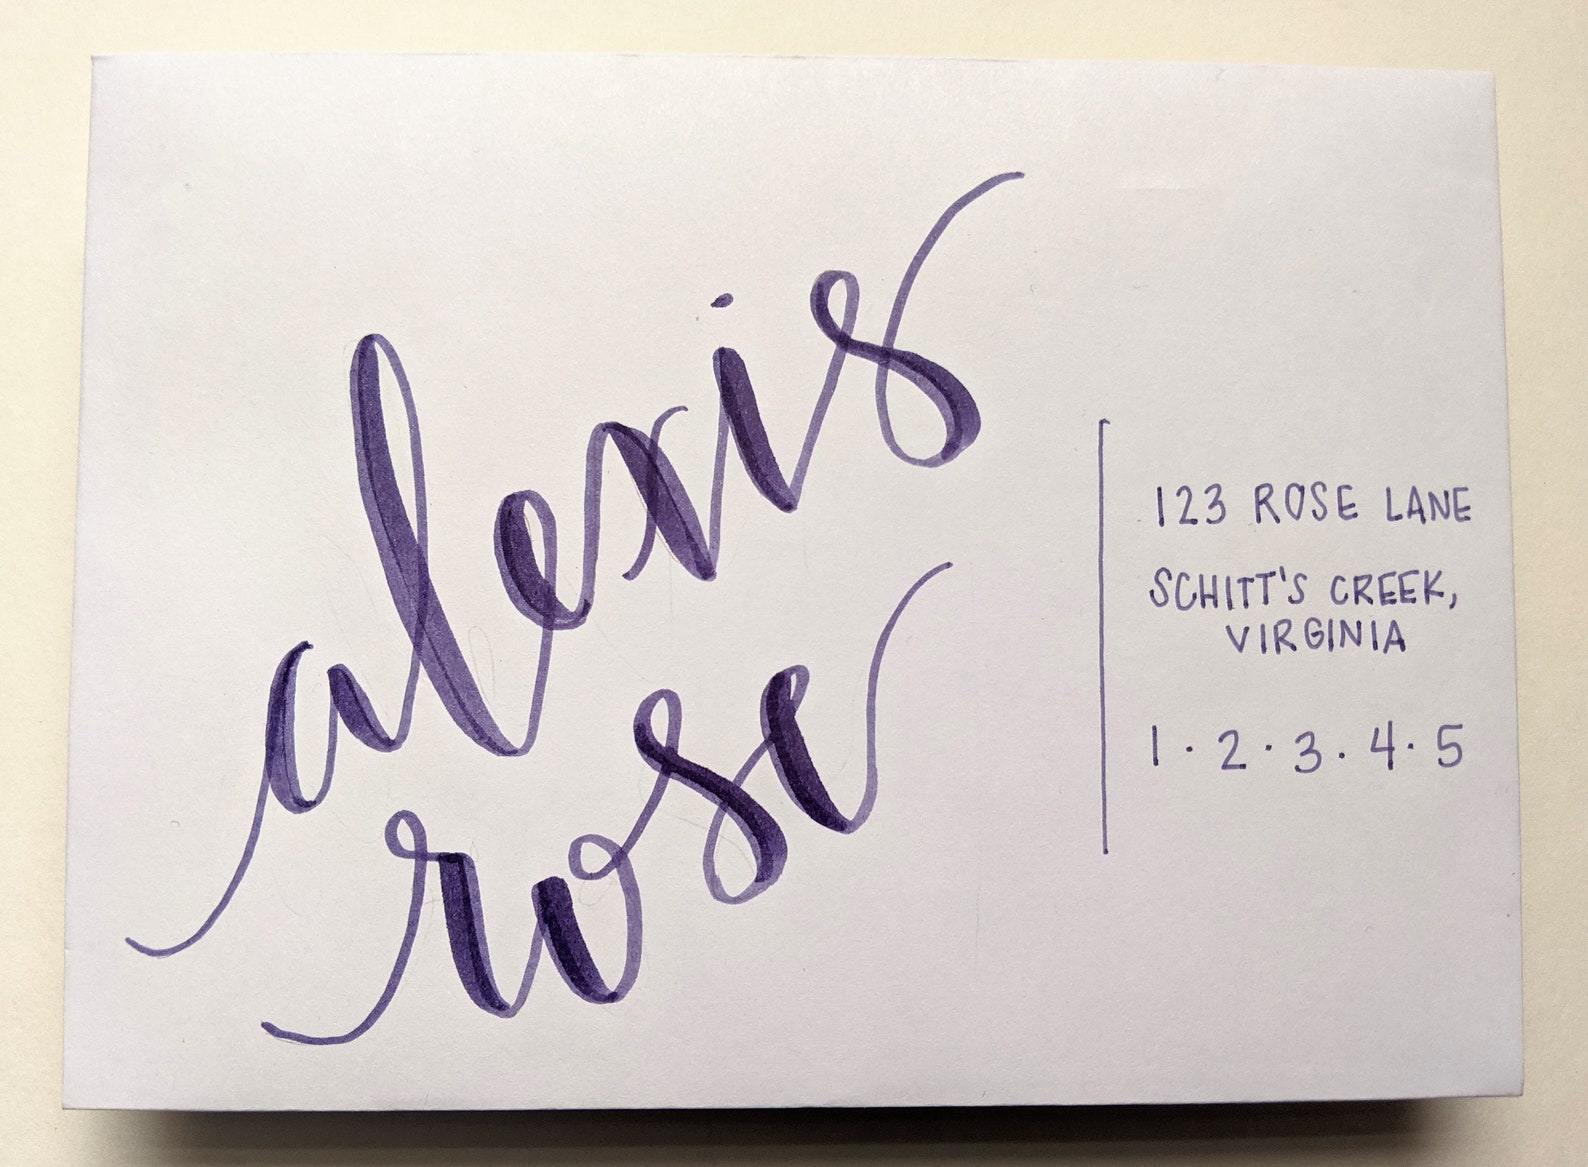 alexis
rose
123 ROSE LANE
SCHITT'S CREEK,
VIRGINIA
1·2·3·4·5